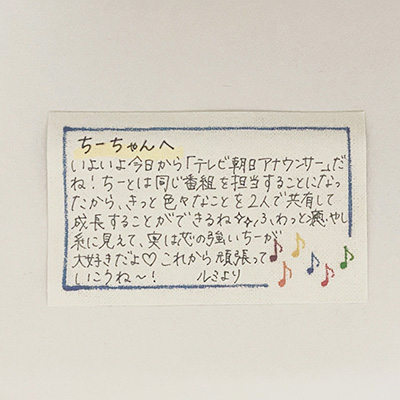 ちーちゃんへ
いよいよ今日から「テレビ朝日アナウンサー」だ
ね！ちーとは同じ番組を担当することになっ
たから、きっと色々なことを2人で共有して
成長することができるね✧✧ふわっと癒やし
系に見えて、実は芯の強いちーが
大好きだよ♡これから頑張って
いこうね〜！　ルミより